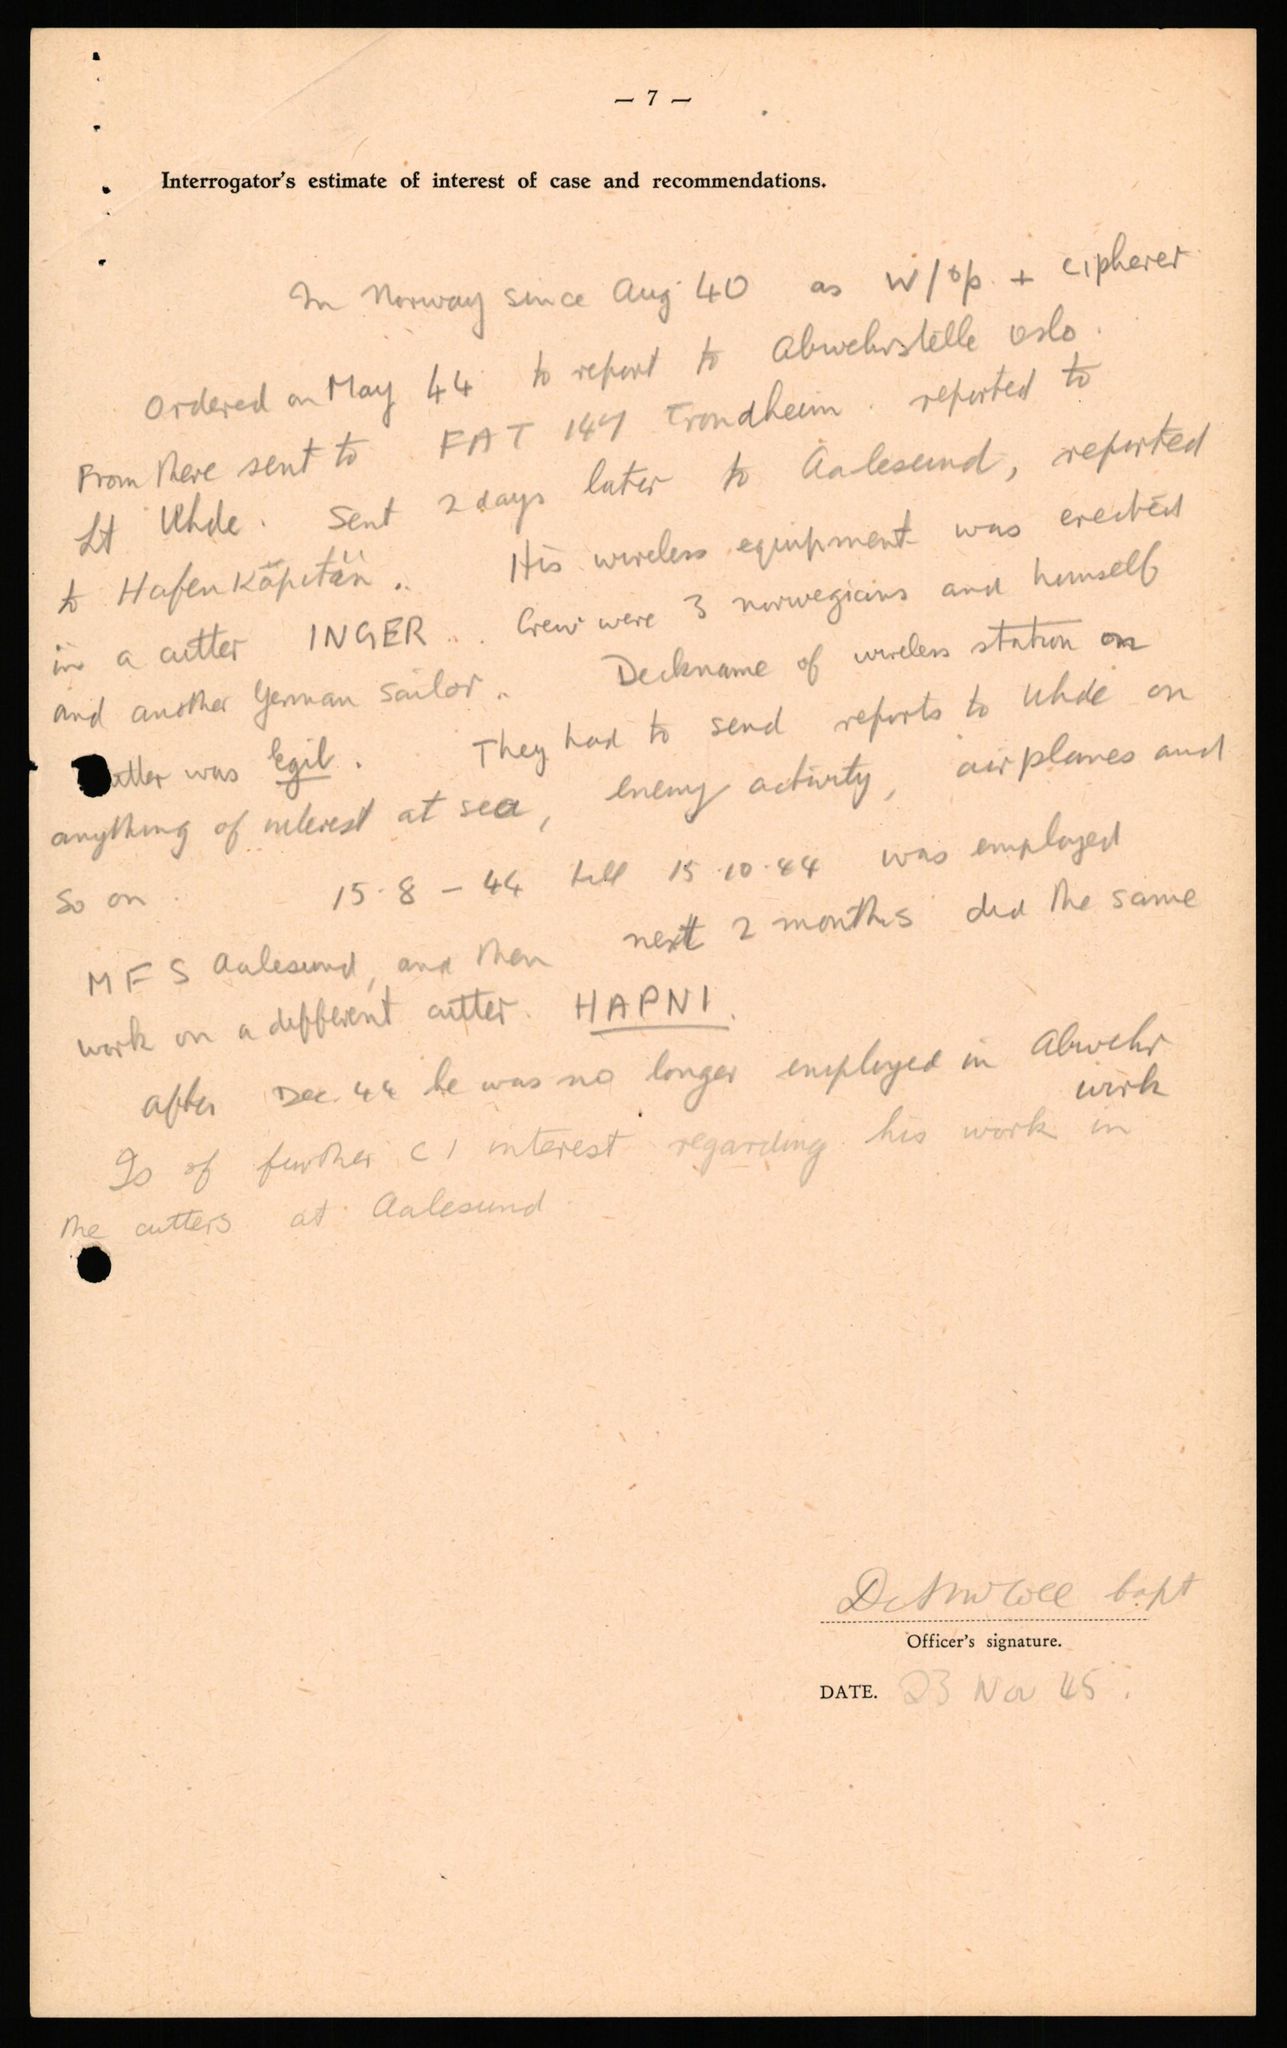 — 7 —
Interrogator's estimate of interest of case and recommendations.
In Norway since Aug 40 as W/op + cipherer
Ordered on May 44 to report to Abwehrstelle Oslo.
From there sent to FAT 147 Trondheim. reported to
Lt Uhde. Sent 2 days later to Aalesund, reported
to Hafenkäpitän.. His wireless equipment was erected
in a cutter INGER.. Crew were 3 norwegians and himself
and another German sailor. Deckname of wireless station on
utter was Egil. They had to send reports to Uhde on
anything of interest at sea, enemy activity, airplanes and
so on. 15.8-44 till 15.10.44 was employed
M F S Aalesund, and then next 2 months did the same
work on a different cutter. HAPNI.
After Dec. 44 he was no longer employed in Abwehr
work
Is of further C I interest regarding his work in
the cutters at Aalesund
Capt
Officer's signature.
DATE. 23 Nov 45.